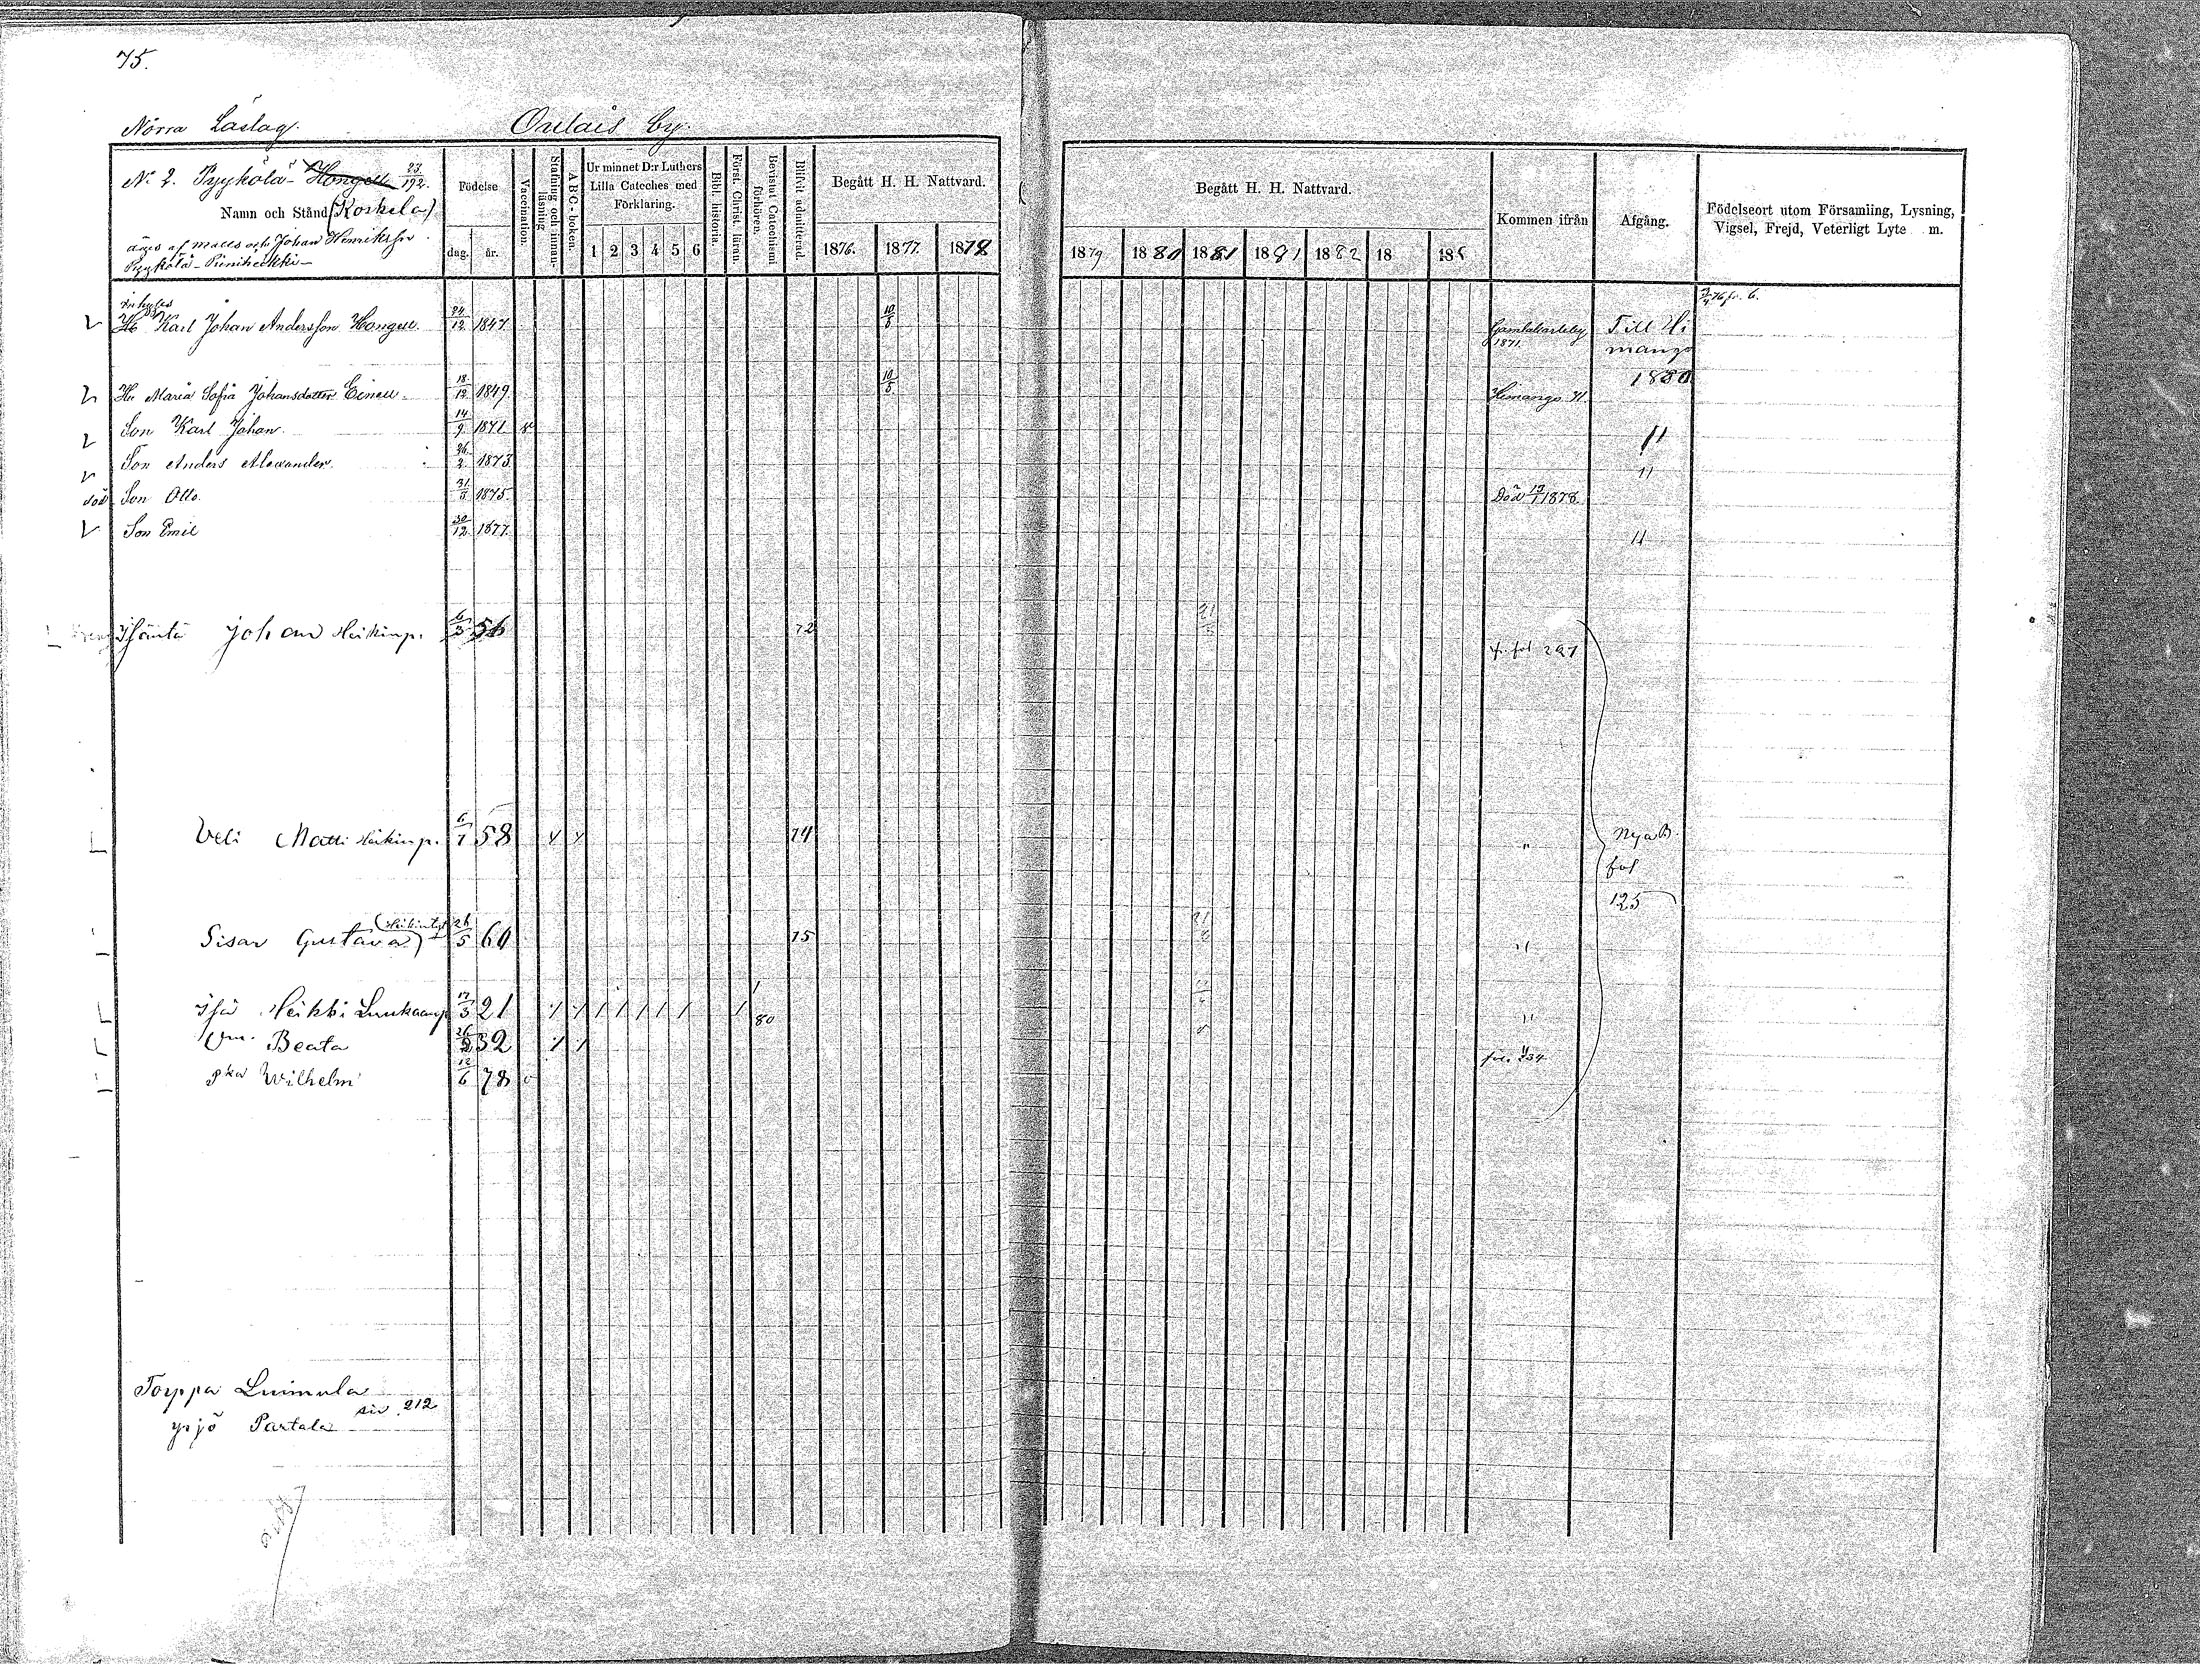 75.
Norra Låslag. Oulais by.
No 2. Pyykölä - Hongell 23/192.
Namn och Stånd (Koskela)
äges af matts och Johan Henriksson
Pyykölä - Piniheikki -
Födelse
dag. år.
Vaccination.
Stafning och innanläsning
ABC-boken.
Ur minnet D:r Luthers Lilla Cateches med Förklaring.
1 2 3 4 5 6
Bibl. historia.
Först. Christ. läran
Bevistat Catechismi förhören.
Blifvit admitterad.
Begått H. H. Nattvard.
1876. 1877. 1878
Begått H. H. Nattvard.
1879 1880 1881 1881 1882 18 188
Kommen ifrån
Afgång.
Födelseort utom Församling, Lysning, Vigsel, Frejd, Veterligt Lyte m.
inhyses
Hr Karl Johan Andersson Hongell. 24/12 1847 10/5 Gamlakarleby 1871. Till Himango 1880 fr. 6.
Hu Maria Sofia Johansdotter Eineu. 18/12 1849 10/5 Himango 71.
Son Karl Johan. 14/9 1871 v "
Son Anders Alexander. 26/2 1873 "
död Son Otto. 31/8 1875. Död 17/1 1878.
Son Emil 30/12 1877. "
Isäntä Johan Heikinp. 6/3 56 72 21 fr. fol 297
Veli Matti Heikinp. 6/7 58 74 " Nya B. fol 125
Sisar Gustava (Heikintyt) 26/5 60 75 21/8 "
Isä Heikki Luukaanp 17/3 21 1 80 "
Vm. Beata 26/2 32 fol. 234
Pka Wilhelm 12/6 78 v
Torppa Luimula
siv 212
yrjö Partala